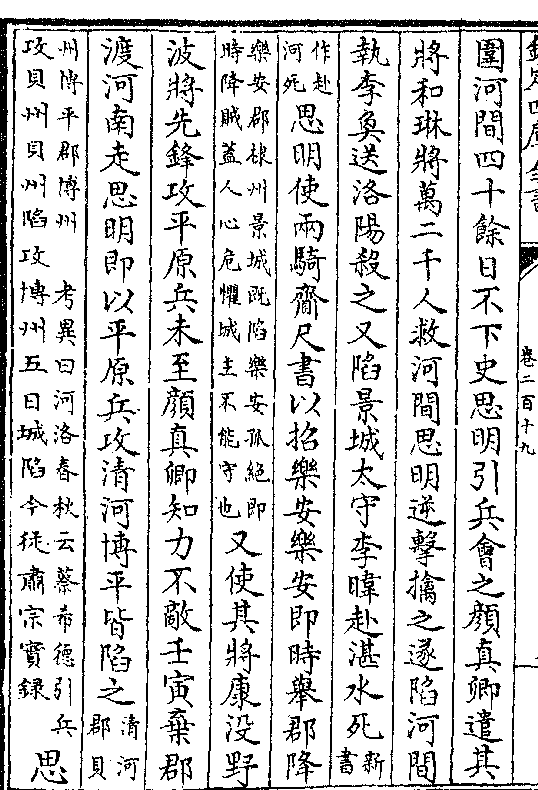 欽定四庫全書
卷二百十九
圍河間四十餘日不下史思明引兵會之顔真卿遣其
將和琳將萬二千人救河間思明逆擊擒之遂陷河間
執李奐送洛陽殺之又陷景城太守李暐赴湛水死新書
作赴河死思明使兩騎齎尺書以招樂安樂安即時舉郡降
樂安郡棣州景城既陷樂安孤絶即時降賊蓋人心危懼城主不能守也又使其將康没野
波將先鋒攻平原兵未至顔真卿知力不敵壬寅棄郡
渡河南走思明即以平原兵攻清河博平皆陷之清河郡貝
州博平郡博州 考異曰河洛春秋云蔡希德引兵攻貝州貝州陷攻博州五日城陷今從肅宗實録思